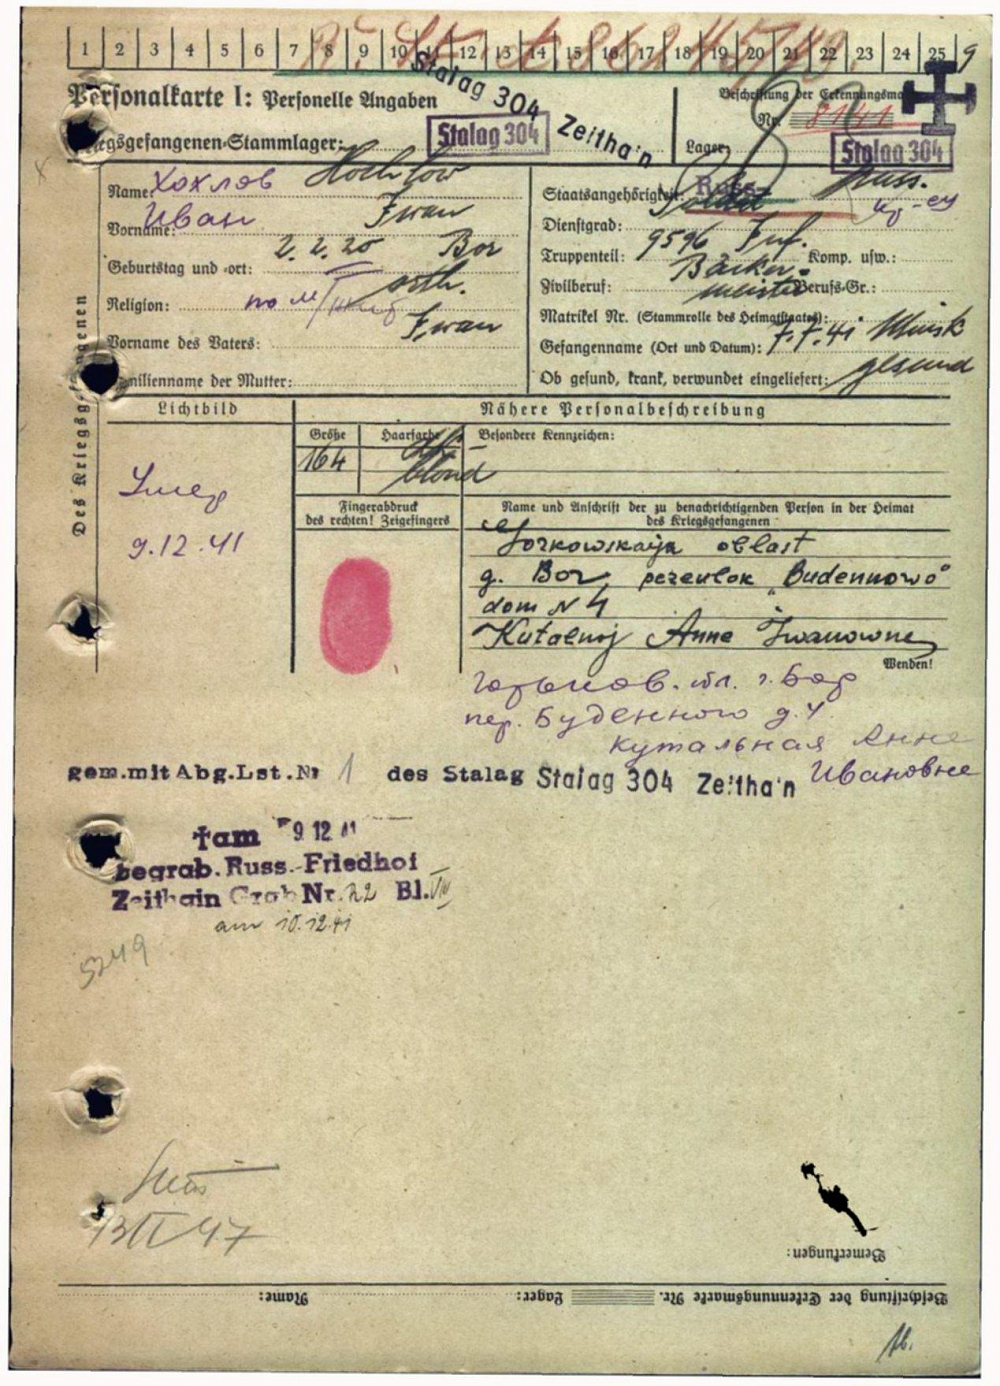 1 2 3 4 5 6 7 8 9 10 11 12 13 14 15 16 17 18 19 20 21 22 23 24 25 9
Personalkarte I: Personelle Angaben
Stalag 304 Zeitha'n
Beschriftung der Erkennungsma
Nr. 8141
Kriegsgefangenen-Stammlager: Stalag 304
Lager: Stalag 304
Des Kriegsgefangenen
Name: Хохлов
Vorname: Иван Iwan
Geburtstag und -ort: 2.2.20 Bor
Religion: orth.
Vorname des Vaters: Iwan
Familienname der Mutter:
Staatsangehörigkeit: Russ. Russ.
Dienstgrad: Soldat
Truppenteil: 9596 Inf. Komp. usw.:
Zivilberuf: Bäcker- meister Berufs-Gr.:
Matrikel Nr. (Stammrolle des Heimatstaates):
Gefangenname (Ort und Datum): 7.7.41 Minsk
Ob gesund, krank, verwundet eingeliefert: gesund
Lichtbild
Nähere Personalbeschreibung
Größe Haarfarbe Besondere Kennzeichen:
164 blond
Умер
9.12.41
Fingerabdruck
des rechten! Zeigefingers
Name und Anschrift der zu benachrichtigenden Person in der Heimat
des Kriegsgefangenen
Gorkowskaja oblast
g. Bor, pereulok "Budennowo"
dom N 4
Kutalnoj Anne Iwanowne
Wenden!
Горьков. обл. г. Бор
пер. Буденного д. 4
Кутальная Анне
Ивановне
gem. mit Abg. Lst. Nr 1 des Stalag Stalag 304 Zeitha'n
† am 9 12 41
begrab. Russ.-Friedhof
Zeithain Grab Nr. 22 Bl.
am 10.12.41
5249
Bemerkungen:
Beschriftung der Erkennungsmarke Nr. Lager: Name: